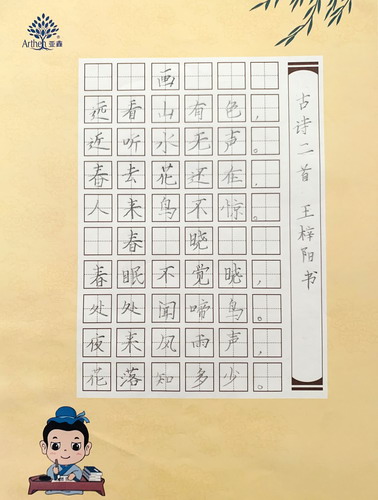 Arthen 亚森
画
远看山有色，
近听水无声。
春去花还在，
人来鸟不惊。
春晓
春眠不觉晓，
处处闻啼鸟。
夜来风雨声，
花落知多少。
古诗二首 王梓阳书